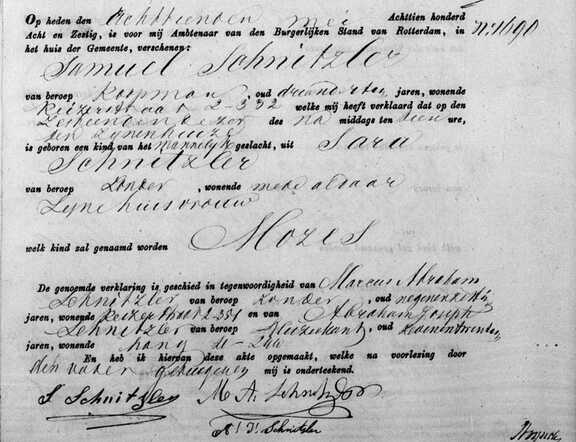 Op heden den Achttienden mei Achttien honderd
Acht en Zestig, is voor mij Ambtenaar van den Burgerlijken Stand van Rotterdam, in
het huis der Gemeente, verschenen:
No. 1690
Samuel Schnitzler
van beroep Koopman, oud jaren, wonende
Keizerstraat 2-332 welke mij heeft verklaard dat op den
Zestienden dezer des na middags ten tien ure,
ten zijnen huize
is geboren een kind van het Mannelijk geslacht, uit Sara
Schnitzler
van beroep zonder, wonende mede aldaar
zijne huisvrouw
welk kind zal genaamd worden Mozes
De genoemde verklaring is geschied in tegenwoordigheid van Marcus Abraham
Schnitzler van beroep zonder, oud negenenzestig
jaren, wonende Keizerstraat 2-331 en van Abraham Joseph
Schnitzler van beroep Muziekant, oud
jaren, wonende
En heb ik hiervan deze akte opgemaakt, welke na voorlezing door
den vader getuigen mij is onderteekend.
S Schnitzler M A Schnitzler
A. J. Schnitzler